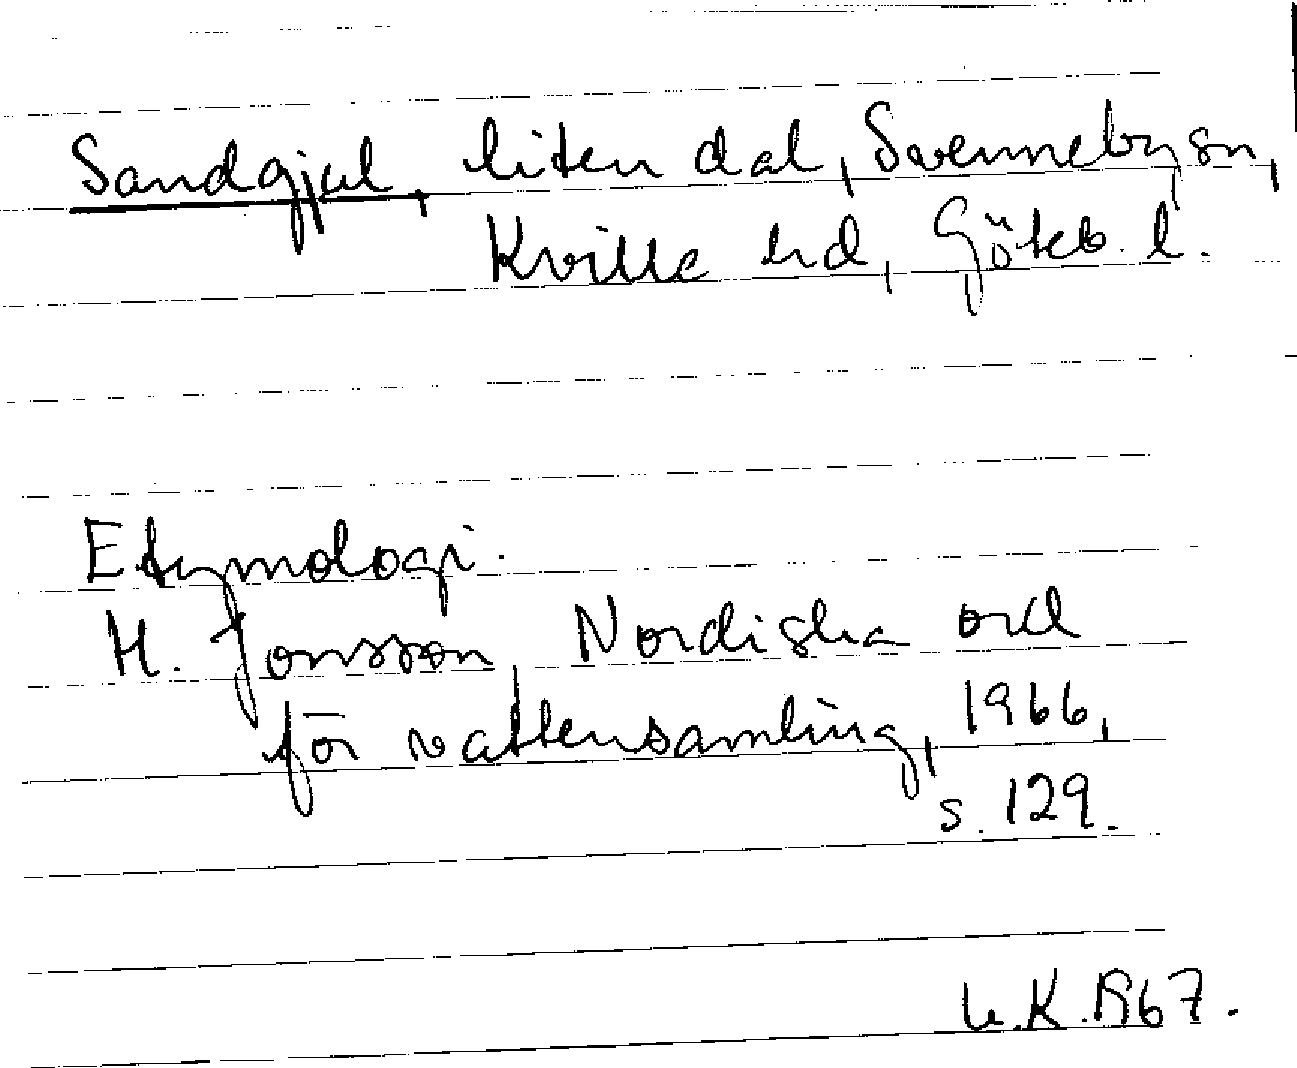 Sandgjul, liten dal, Svenneby sn,
Kville hd, Göteb. l.
Etymologi.
H. Jonsson, Nordiska ord
för vattensamling, 1966,
s. 129.
U.K. 1967.